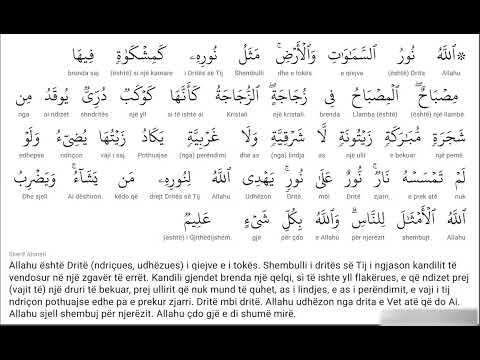 ۞ ٱللَّهُ نُورُ ٱلسَّمَـٰوَٰتِ وَٱلْأَرْضِ ۚ مَثَلُ نُورِهِۦ كَمِشْكَوٰةٍ فِيهَا
Allahu (është) Drita e qiejve dhe e tokës. Shembulli i Dritës së Tij (është) si një kamare brenda saj
مِصْبَاحٌ ۖ ٱلْمِصْبَاحُ فِى زُجَاجَةٍ ۖ ٱلزُّجَاجَةُ كَأَنَّهَا كَوْكَبٌ دُرِّىٌّ يُوقَدُ مِن
(është) një llambë. Llamba (është) brenda kristali. Kristali si të ishte ai një yll shndritës ai ndizet nga
شَجَرَةٍ مُّبَـٰرَكَةٍ زَيْتُونَةٍ لَّا شَرْقِيَّةٍ وَلَا غَرْبِيَّةٍ يَكَادُ زَيْتُهَا يُضِىٓءُ وَلَوْ
një pemë. e bekuar një ulli as (nga) lindja dhe as (nga) perëndimi Pothuajse vaji i saj ndriçon edhepse
لَمْ تَمْسَسْهُ نَارٌ ۚ نُّورٌ عَلَىٰ نُورٍ ۗ يَهْدِى ٱللَّهُ لِنُورِهِۦ مَن يَشَآءُ ۚ وَيَضْرِبُ
nuk e prek atë zjarri. Dritë mbi dritë. Allahu drejt Dritës së Tij këdo Ai dëshiron. Dhe sjell
ٱللَّهُ ٱلْأَمْثَـٰلَ لِلنَّاسِ ۗ وَٱللَّهُ بِكُلِّ شَىْءٍ عَلِيمٌ
Allahu shembujt. për njerëzit Dhe Allahu për çdo gjë (është) i Gjithëdijshëm.
Sherif Ahmeti
Allahu është Dritë (ndriçues, udhëzues) i qiejve e i tokës. Shembulli i dritës së Tij i ngjason kandilit të
vendosur në një zgavër të errët. Kandili gjendet brenda një qelqi, si të ishte yll flakërues, e që ndizet prej
(vajit të) një druri të bekuar, prej ullirit që nuk mund të quhet, as i lindjes, e as i perëndimit, e vaji i tij
ndriçon pothuajse edhe pa e prekur zjarri. Dritë mbi dritë. Allahu udhëzon nga drita e Vet atë që do Ai.
Allahu sjell shembuj për njerëzit. Allahu çdo gjë e di shumë mirë.